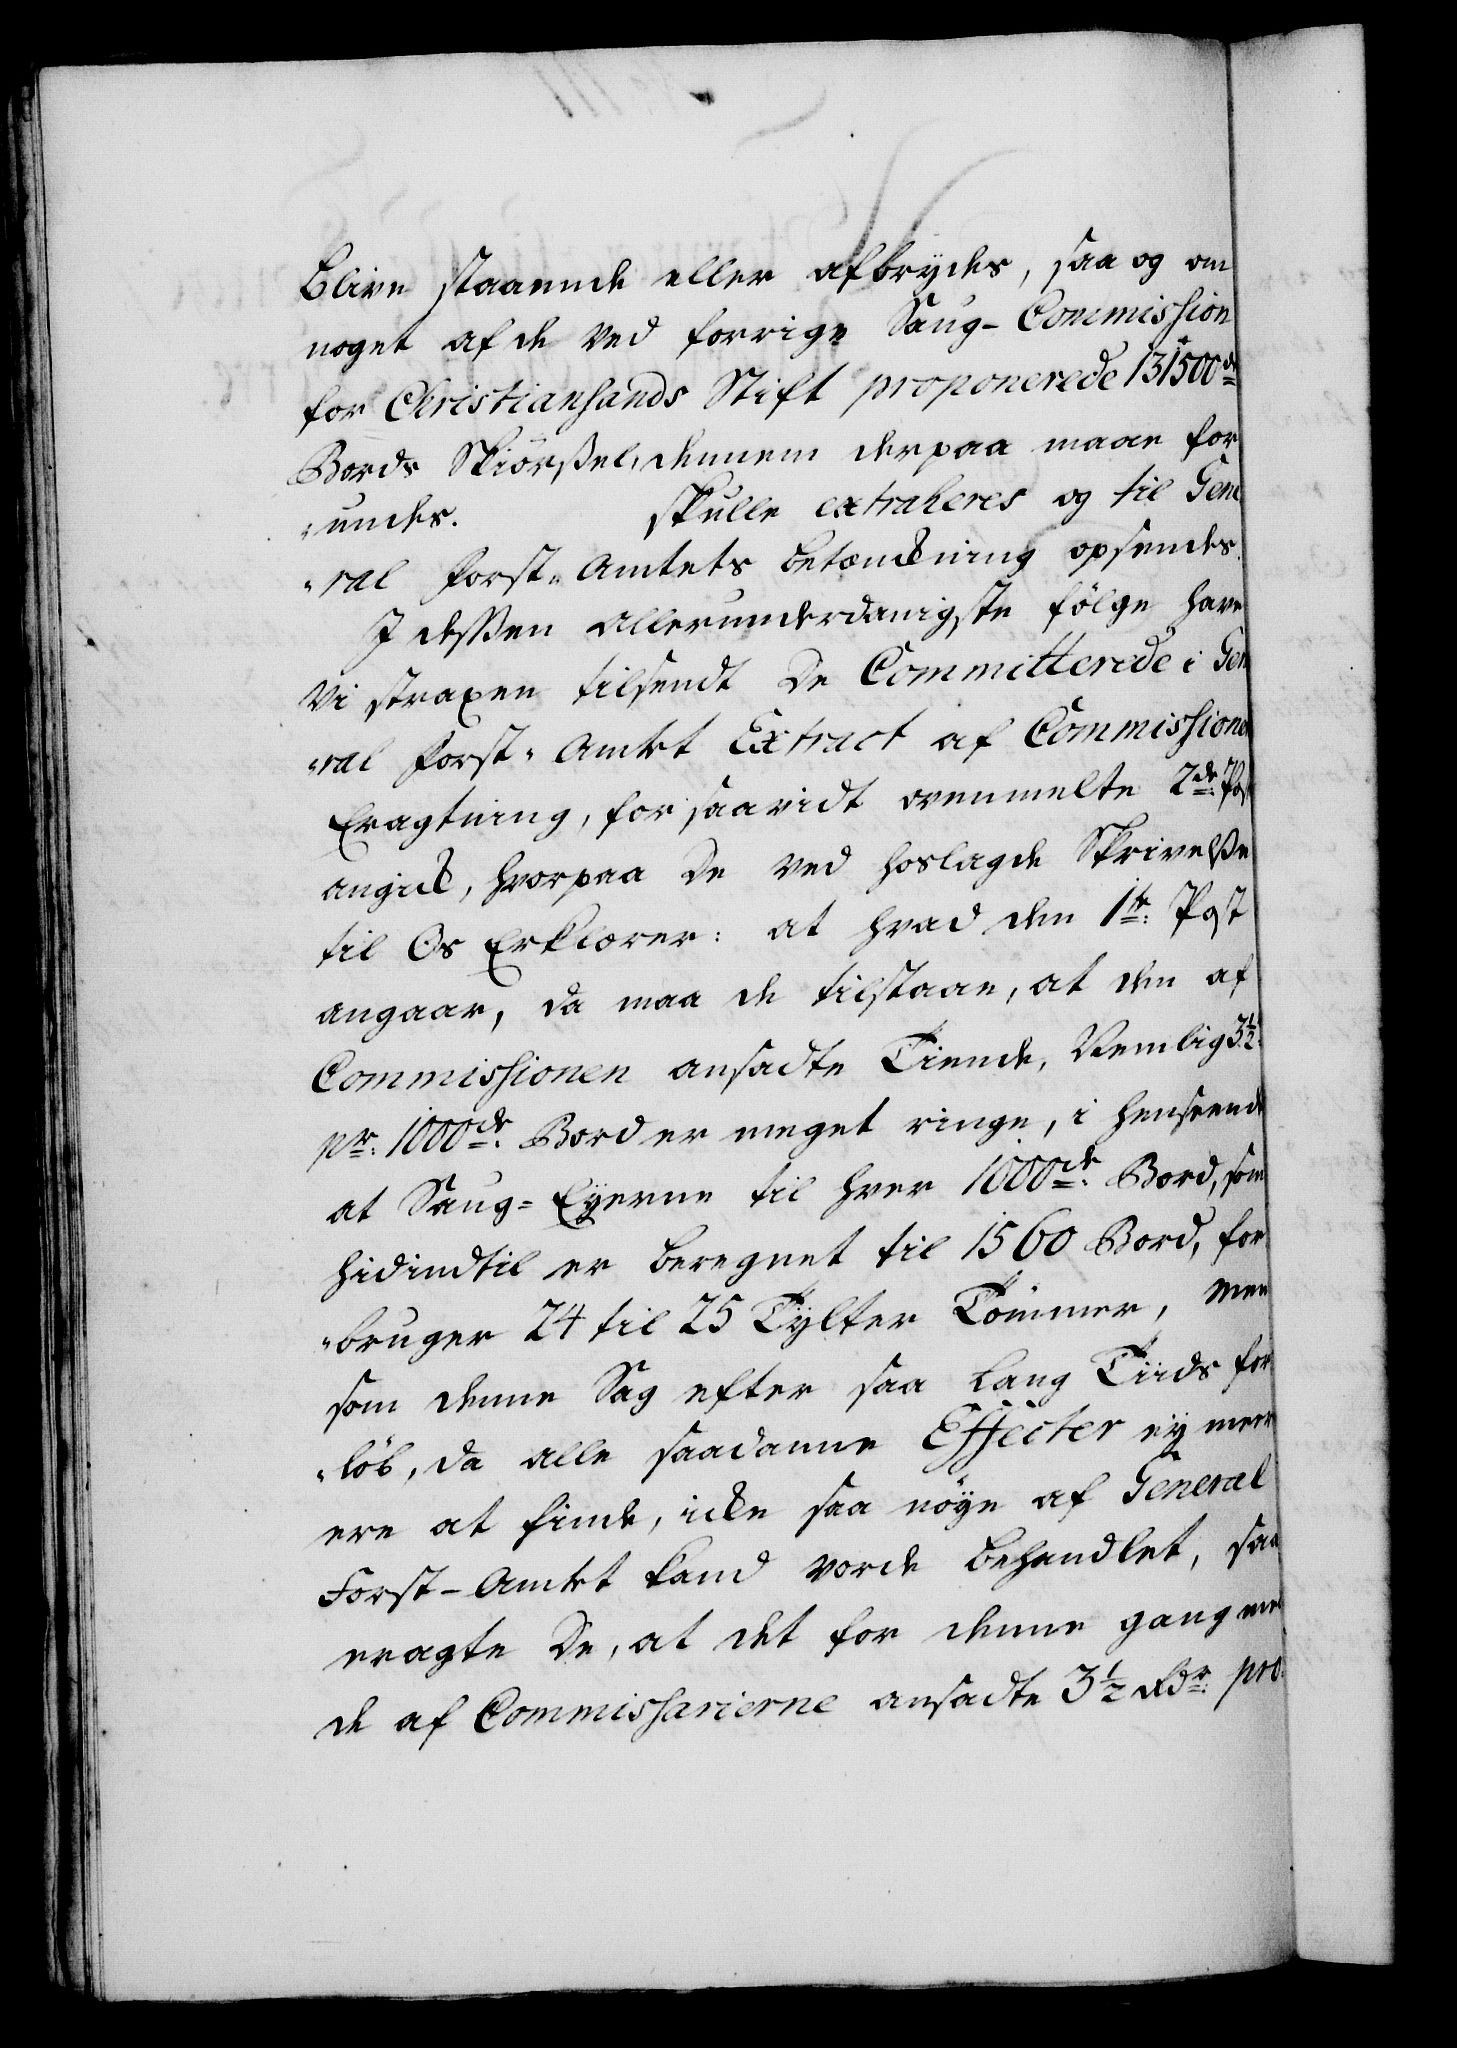 blive staaende eller afbrydes, saa og om
noget af de ved forrige Saug-Commission
for Christiansands Stift proponerede 131500de
Bords Skiørsel, dennem derpaa maae for
„undes. skulle extraheres og til Gene
„ral Forst-Amtets betænkning opsendes.
I dessen allerunderdanigste følge have
Vi straxen tilsendt De Committerede i Gene
„ral Forst-Amtet Extract af Commissionens
Eragtning, forsaavidt ovenmelte 2de Post
angik, hvorpaa De ved hoslagde Skrivelsse
til Os Erklærer: at hvad den 1te Post
angaar, da maa de tilstaae, at den af
Commissionen ansadte Tiende, Nemlig 3½
pr: 1000de Bord er meget ringe, i henseende
at Saug-Eyerne til hver 1000de Bord, som
hidindtil er beregnet til 1560 Bord, for
„bruger 24 til 25 Tylter Tømmer, Men
som denne Sag efter saa lang Tiids for
„løb, da alle saadanne Effecter ey meere
ere at finde, icke saa nøye af General
Forst-Amtet kand vorde behandlet, saa
eragte De, at det for denne gang med
de af Commissarierne ansadte 3½ Rdr: pro